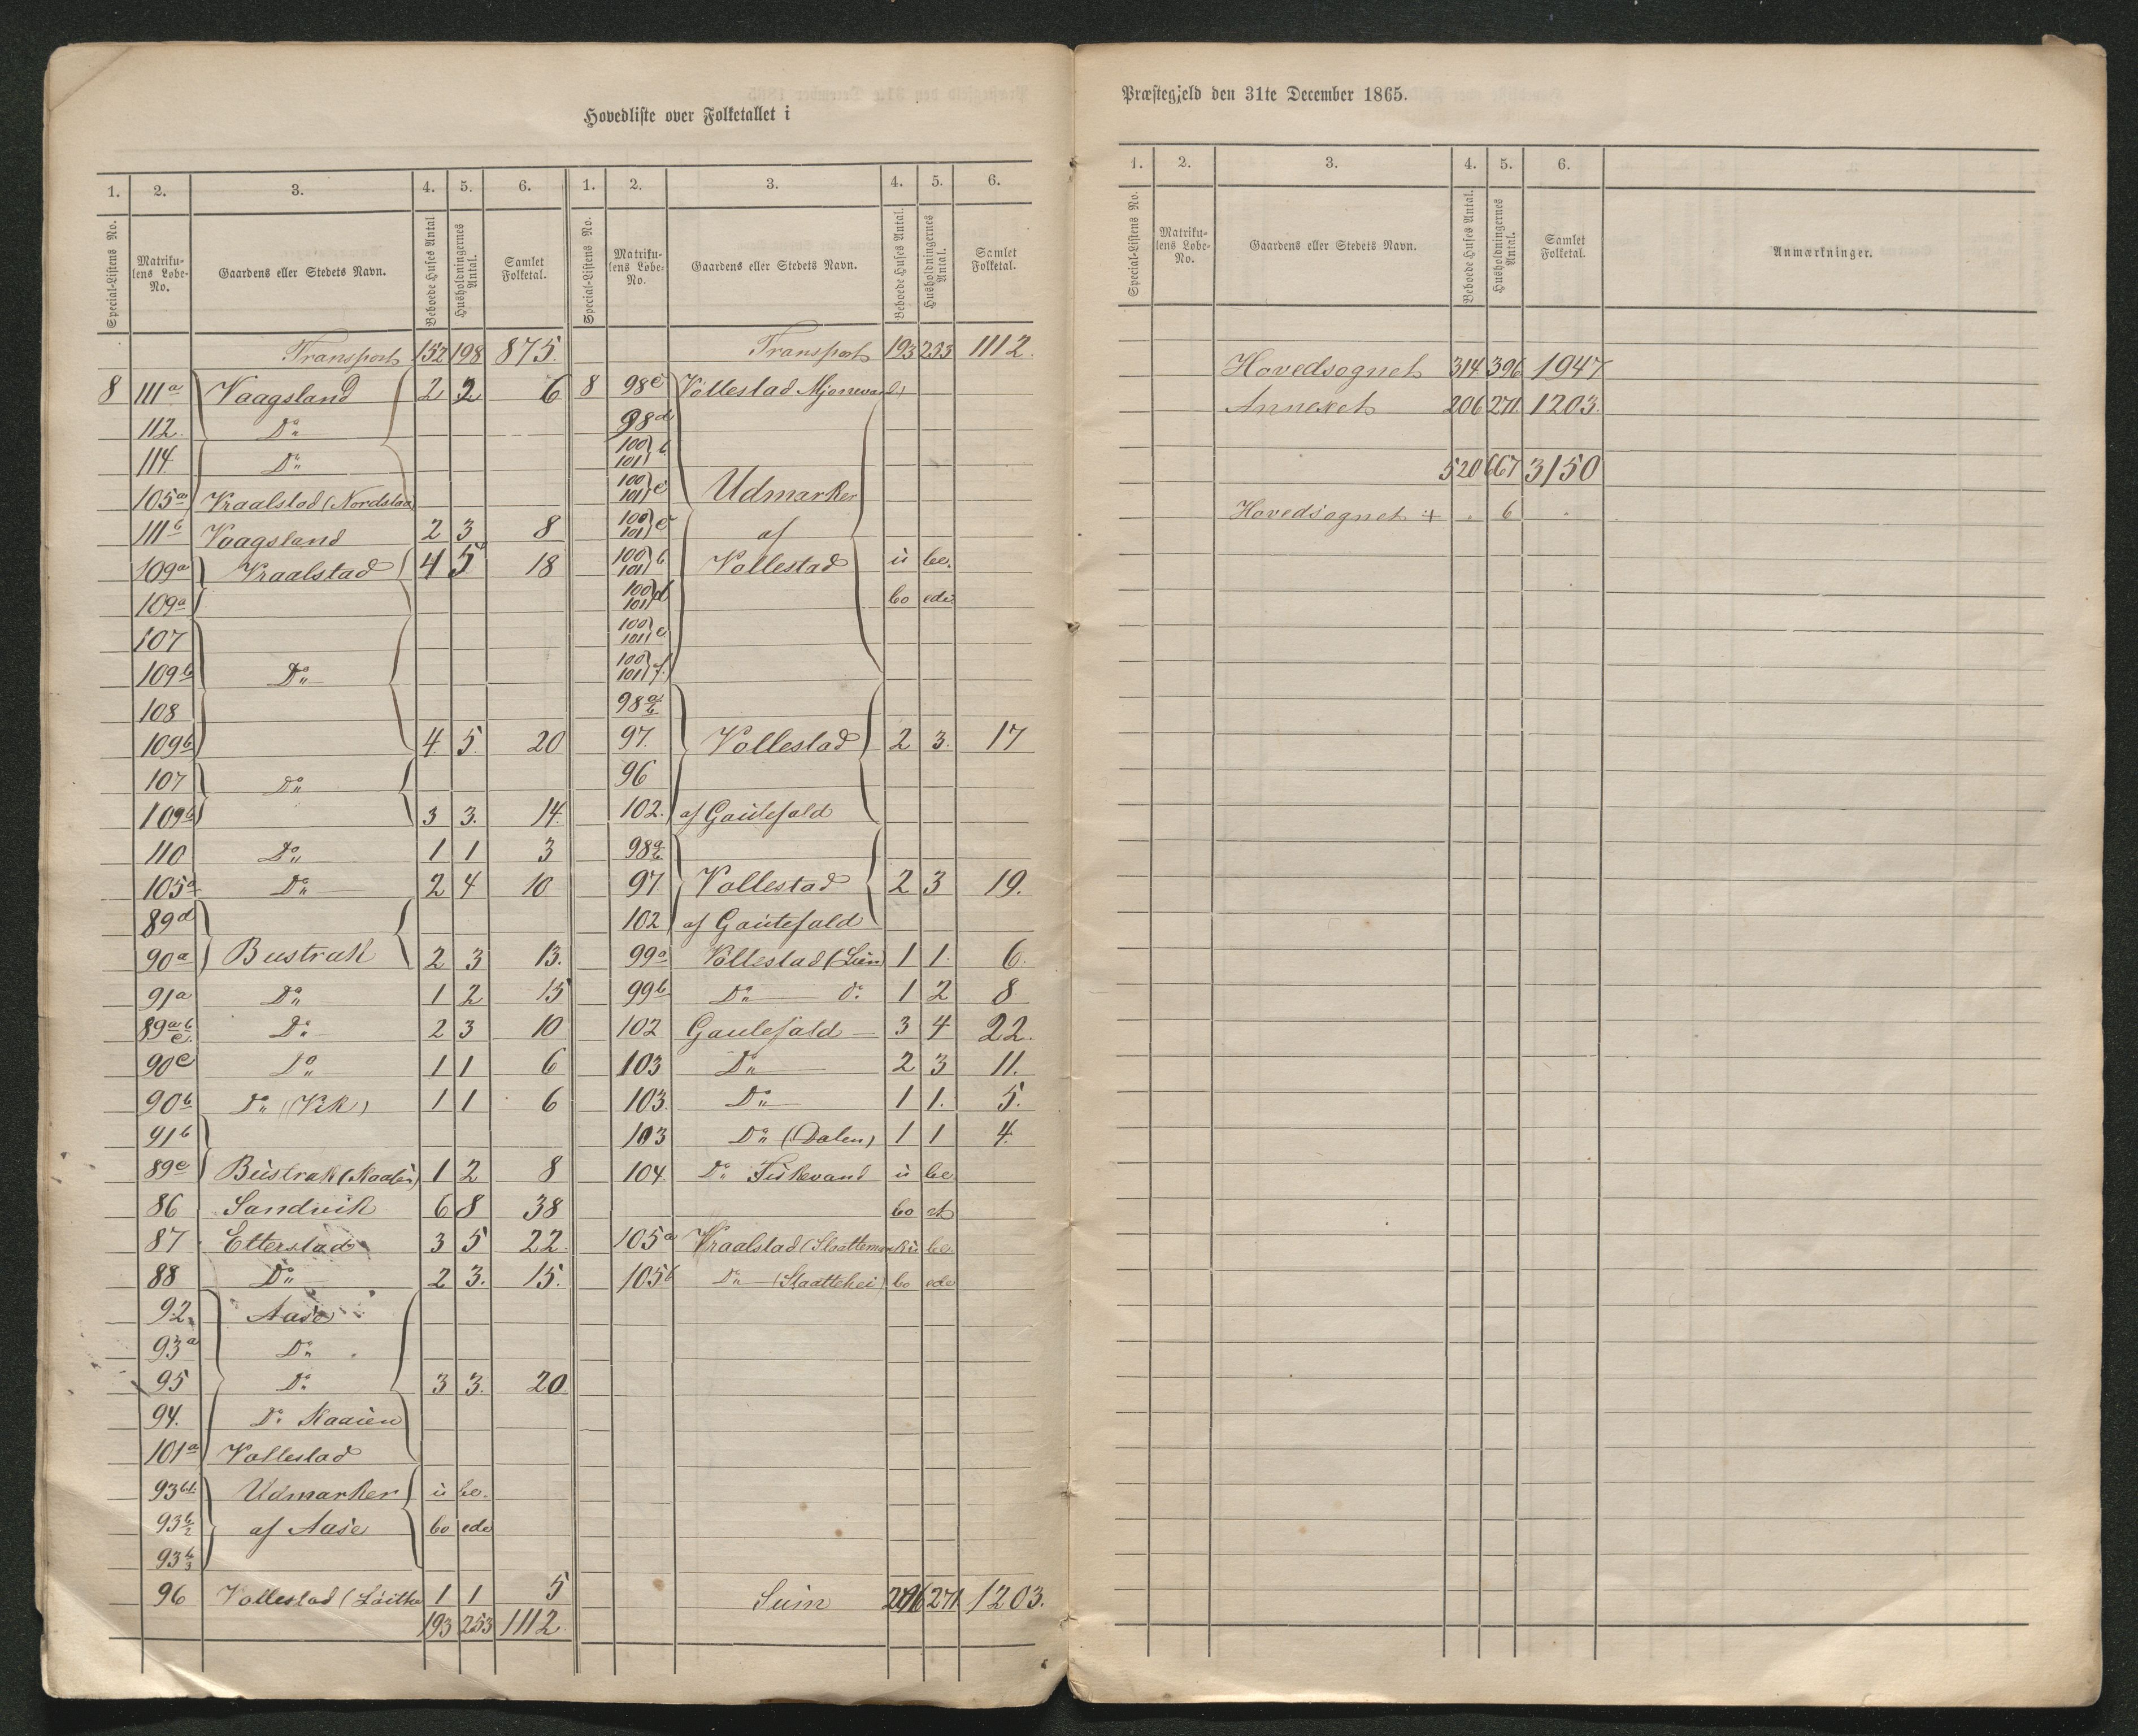 Hovedliste over Folketallet i
1. 2. 3. 4. 5. 6.
Special-Listens No. Matriku-lens Løbe-No. Gaardens eller Stedets Navn. Beboede Huses Antal Husholdningernes Antal. Samlet Folketal.
Transport 152 198 875.
8 111a Vaagsland 2 2 6
112. Do
114. Do
105a Vraalstad (Nordslaa)
111b Vaagsland 2 3 8
109a Vraalstad 4 5 18
109a
107
109b Do
108
109b 4 5. 20
107 Do
109b 3 3. 14.
110 Do 1 1 3
105a Do 2 4 10
89d
90a Bustrak 2 3 13.
91a Do 1 2 15
89a b c. Do 2 3 10
90c Do 1 1 6
90b Do (Vik) 1 1 6
91b
89e Bustrak (Kaasen) 1 2 8
86 Sandvik 6 8 38
87 Etterstad 3 5 22.
88 Do 2 3. 15.
92. Aase
93a Do
95 Do 3 3. 20.
94. Do Kaasen
101a Vollestad
93b1 Udmarker u be.
93b2 af Aase bo ede
93b3
96 Vollestad ( 1 1 5
193 253 1112
1. 2. 3. 4. 5. 6.
Special-Listens No. Matriku-lens Løbe-No. Gaardens eller Stedets Navn. Beboede Huses Antal. Husholdningernes Antal. Samlet Folketal.
Transport 193 253 1112.
8 98c Vollestad Mjonevand
98d
100 101 b
100 101 c Udmarker
100 101 c af
100 101 b Vollestad u be.
100 101 d bo ede
100 101 e
100 101 f.
98a b
97. Vollestad 2 3. 17
96
102. af Gautefald
98a b
97 Vollestad 2 3 19.
102 af Gautefald
99a Vollestad (Lien) 1 1. 6.
99b Do do 1 2 8
102 Gautefald 3 4 22.
103 Do 2 3 11.
103. Do 1 1. 5.
103 Do (Dalen) 1 1 4.
104 Do Fiskevand u be
bo et
105a Vraalstad (Slaattemark u be.
105b Do (Slaattehei) bo ede
Sum 206 271 1203.
Præstegjeld den 31te December 1865.
1. 2. 3. 4. 5. 6.
Special-Listens No. Matriku-lens Løbe-No. Gaardens eller Stedets Navn. Beboede Huses Antal. Husholdningernes Antal. Samlet Folketal. Anmærkninger.
Hovedsognet 314 396 1947
Annexet 206 271 1203.
520 667 3150
Hovedsognet + " 6 "